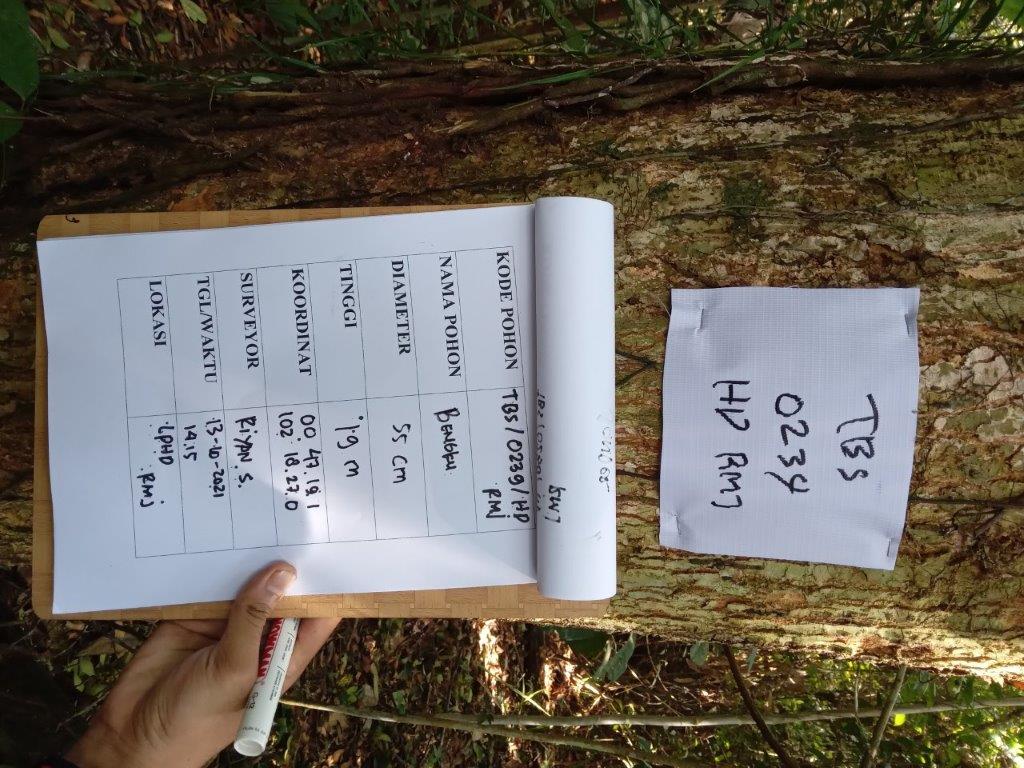 TBS
0234
HD RMJ
KODE POHON TBS/0234/HD
RMJ
NAMA POHON BENGKU
DIAMETER 55 cm
TINGGI 19 m
KOORDINAT 00. 47. 18. 1
102 18. 27. 0
SURVEYOR RiYAN. S.
TGL/WAKTU 13-10-2021
14.15
LOKASI LPHD
RMJ
SNOWMAN
G-12